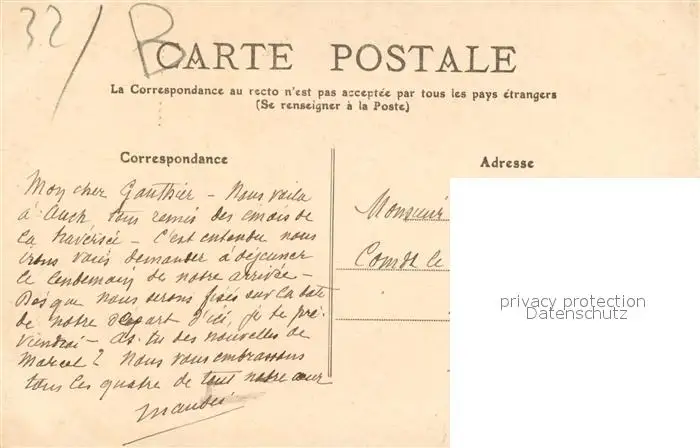 32/ B
CARTE POSTALE
La Correspondance au recto n'est pas acceptée par tous les pays étrangers
(Se renseigner à la Poste)
Correspondance
Adresse
Mon cher Gauthier – Nous voila
à Auch tous remis des émois de
la traversée – C'est entendu nous
irons vous demander à déjeuner
le lendemain de notre arrivée –
Dès que nous serons fixés sur la date
de notre départ d'ici, je te pré-
viendrai – As tu des nouvelles de
Marcel ? Nous vous embrassons
tous les quatre de tout notre cœur
Monsieur
Comdt le
privacy protection
Datenschutz